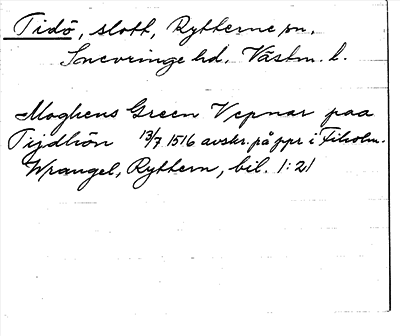 Tidö, slott, Rytterne sn.
Snevringe hd. Västm. l.
Moghens Green Vepnar paa
Tijdhön 13/7 1516 avskr. på ppr i Fiholm.
Wrangel, Ryttern, bil. 1:21